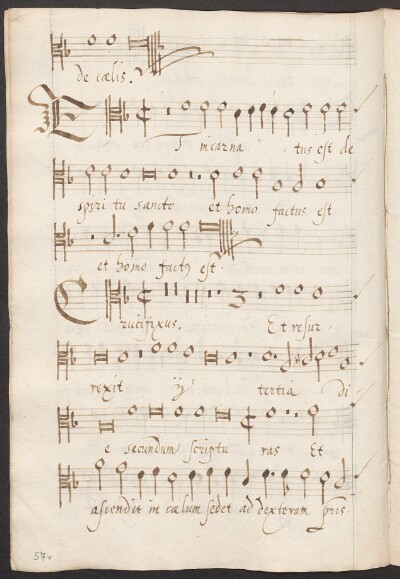 de cœlis.
E T incarna tus est de
spiri tu sancto et homo factus est
et homo factus est.
C rucifixus. Et resur-
rexit ij tertia di
e secundum scriptu ras Et
ascendit in cælum sedet ad dexteram pris.
57v